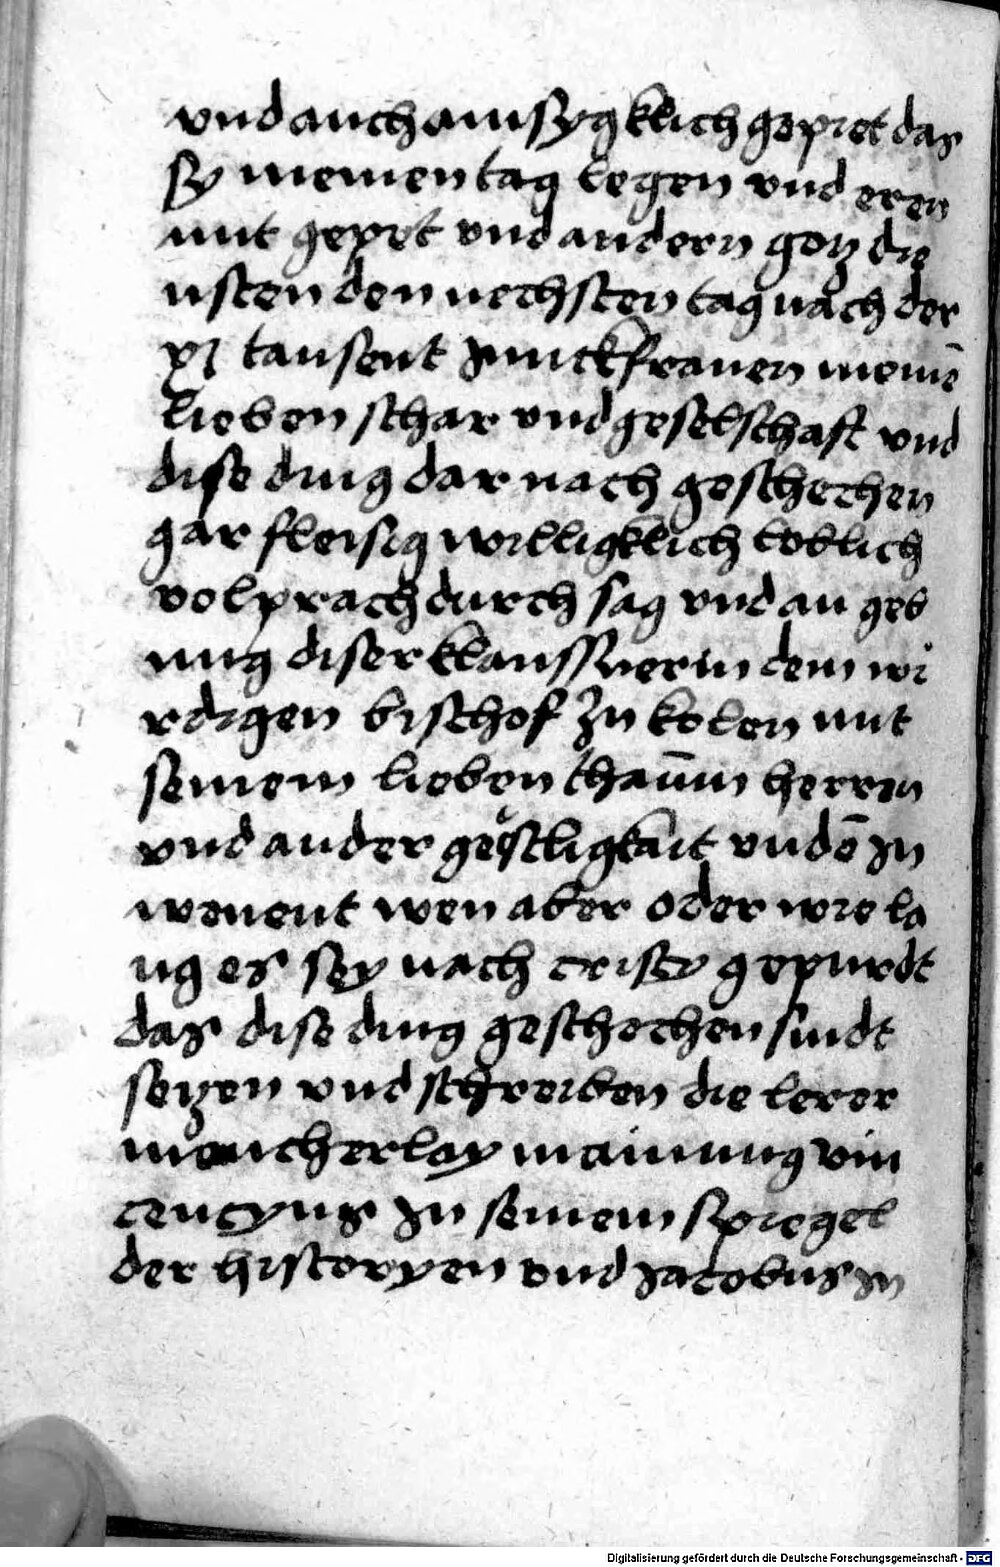 vnd auch amsygklich gepiet das
sy meinen tag legen vnd eren
mit gepet vnd andern gotz die
nsten den nechsten tag nach der
xi tausent Junckfrauen meinē
lieben schar vnd geselschaft vnd
dise ding dar nach geschechen
gar fleisig willigklich loblich
volprach durch sag vnd an geb
ung diser klaussnerin dem wi
rdigen bischof zu kolen mit
seinem lieben thaum herren
vnd ander geistligkait vndē zu
wenent wen aber oder wie la
ng es sey nach cristy gepurdt
das dise ding geschechen sindt
seczen vnd schreiben die lerer
mancherlay mainung vin
cencyus Jn seinem spiegel
der historyen vnd Jacobus Jn
Digitalisierung gefördert durch die Deutsche Forschungsgemeinschaft - DFG